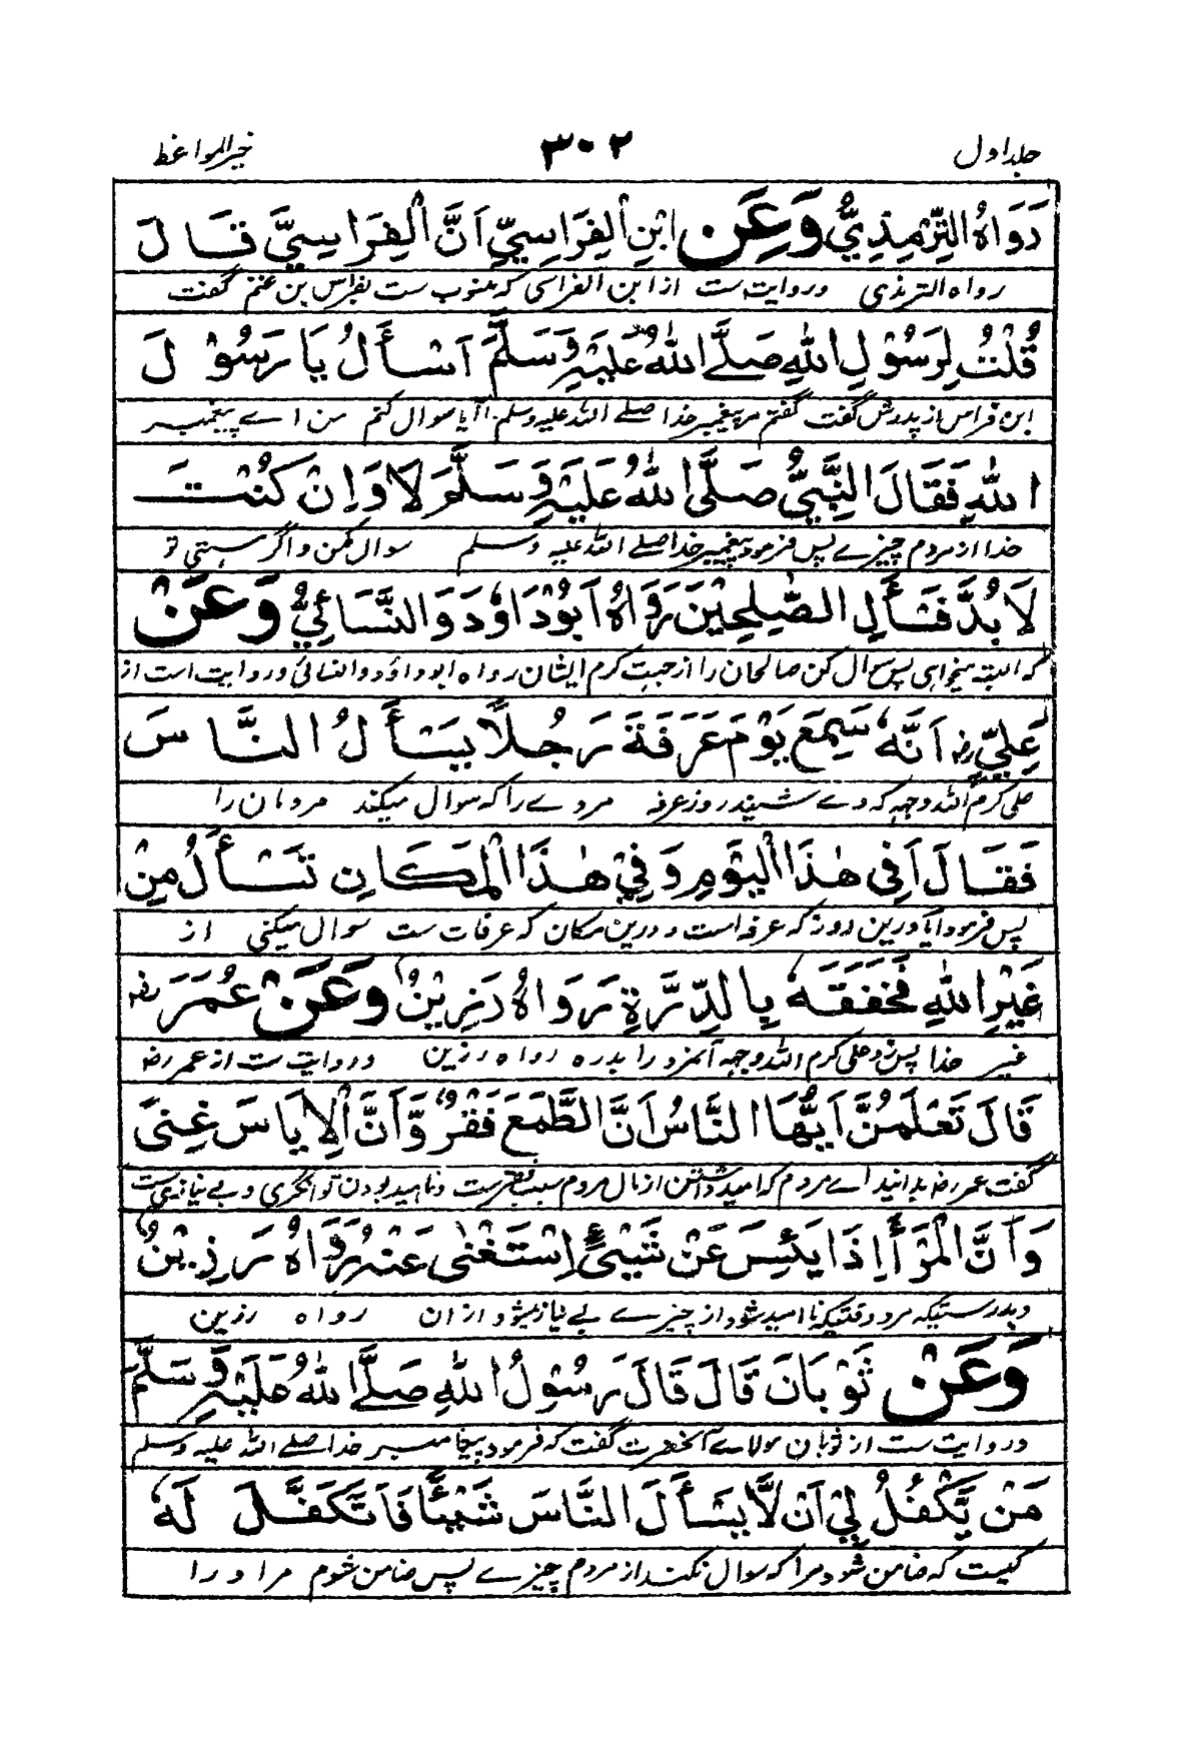 جلد اول ۳۰۲ خیر المواعظ
رَوَاهُ التِّرْمِذِيُّ وَعَنِ ابْنِ الْفِرَاسِيِّ اَنَّ الْفِرَاسِيَّ قَالَ
رواه الترمذی وروایت ست از ابن الفراسی که منوب ست بفراس بن غنم گفت
قُلْتُ لِرَسُوْلِ اللهِ صَلَّے اللهُ عَلَيْهِ وَسَلَّمَ اَسْأَلُ يَا رَسُوْلَ
ابن فراس از پدرش گفت گفتم مر پیغمبر خدا صلے الله علیه وسلم آیا سوال کنم من اے پیغمبر
اللهِ فَقَالَ النَّبِيُّ صَلَّى اللهُ عَلَيْهِ وَسَلَّمَ لَا وَاِنْ كُنْتَ
خدا از مردم چیزے پس فرمود پیغمبر خدا صلے الله علیه وسلم سوال مکن و اگر هستی تو
لَا بُدَّ فَسْأَلِ الصّٰلِحِيْنَ رَوَاهُ اَبُوْدَاوٗدَ وَالنَّسَائِيُّ وَعَنْ
که البته میخواهی پس سوال کن صالحان را از جهت کرم ایشان رواه ابو داؤد و النسائی و روایت است از
عَلِيٍّ رض اَنَّهٗ سَمِعَ يَوْمَ عَرَفَةَ رَجُلًا يَسْأَلُ النَّاسَ
علی کرم الله وجهه که وے شنید روز عرفه مردے را که سوال میکند مردمان را
فَقَالَ اَفِى هٰذَا الْيَوْمِ وَفِيْ هٰذَا الْمَكَانِ تَسْأَلُ مِنْ
پس فرمود آیا درین روز که عرفه است و درین مکان که عرفات ست سوال میکنی از
غَيْرِ اللهِ فَخَفَقَهٗ بِالدِّرَّةِ رَوَاهُ رَزِيْنٌ وَعَنْ عُمَرَ رض
غیر خدا پس زد علی کرم الله وجهه آنمرد را بدره رواه رزین و روایت ست از عمر رض
قَالَ تَعْلَمُنَّ اَيُّهَا النَّاسُ اَنَّ الطَّمَعَ فَقْرٌ وَّاَنَّ الْاِيَاسَ غِنًى
گفت عمر رض بدانید اے مردم که امید داشتن از مال مردم سبب فقر ست و ناامید بودن توانگری و بے نیازی ست
وَاَنَّ الْمَرْأَ اِذَا يَئِسَ عَنْ شَيْئٍ اِسْتَغْنٰى عَنْهُ رَوَاهُ رَزِيْنٌ
وبدرستیکه مرد وقتیکه ناامید شود از چیزے بے نیاز میشود از ان رواه رزین
وَعَنْ ثَوْبَانَ قَالَ قَالَ رَسُوْلُ اللهِ صَلَّے اللهُ عَلَيْهِ وَسَلَّمَ
و روایت ست از ثوبان مولاے آنحضرت گفت که فرمود پیغامبر خدا صلے الله علیه وسلم
مَنْ يَّكْفُلُ لِيْ اَنْ لَّا يَسْأَلَ النَّاسَ شَيْئًا فَاَتَكَفَّلَ لَهٗ
کیست که ضامن شود مرا که سوال نکند از مردم چیزے پس ضامن شوم مر او را